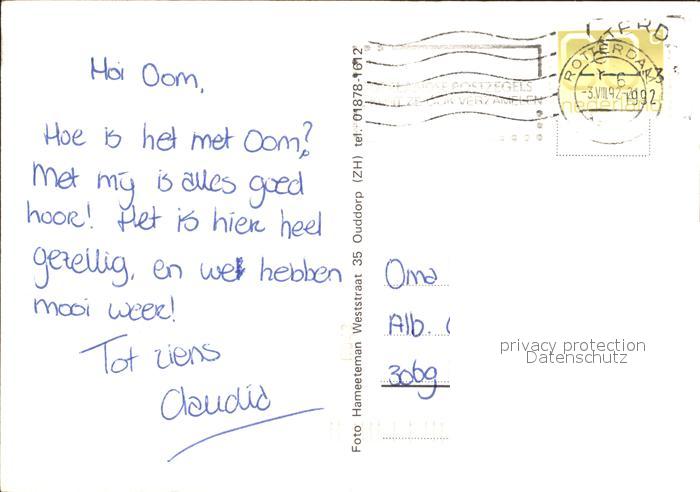 Hoi Oom,
Hoe is het met Oom?
Met mij is alles goed
hoor! Het is hier heel
gezellig, en we hebben
mooi weer!
Tot ziens
Claudia
Foto Hameeteman Weststraat 35 Ouddorp (ZH) tel. 01878-1612
POSTZEGELS
VERZAMELEN
ROTTERDAM
-3.VIII.92
1992
nederland
Oma
Alb.
3069
privacy protection
Datenschutz